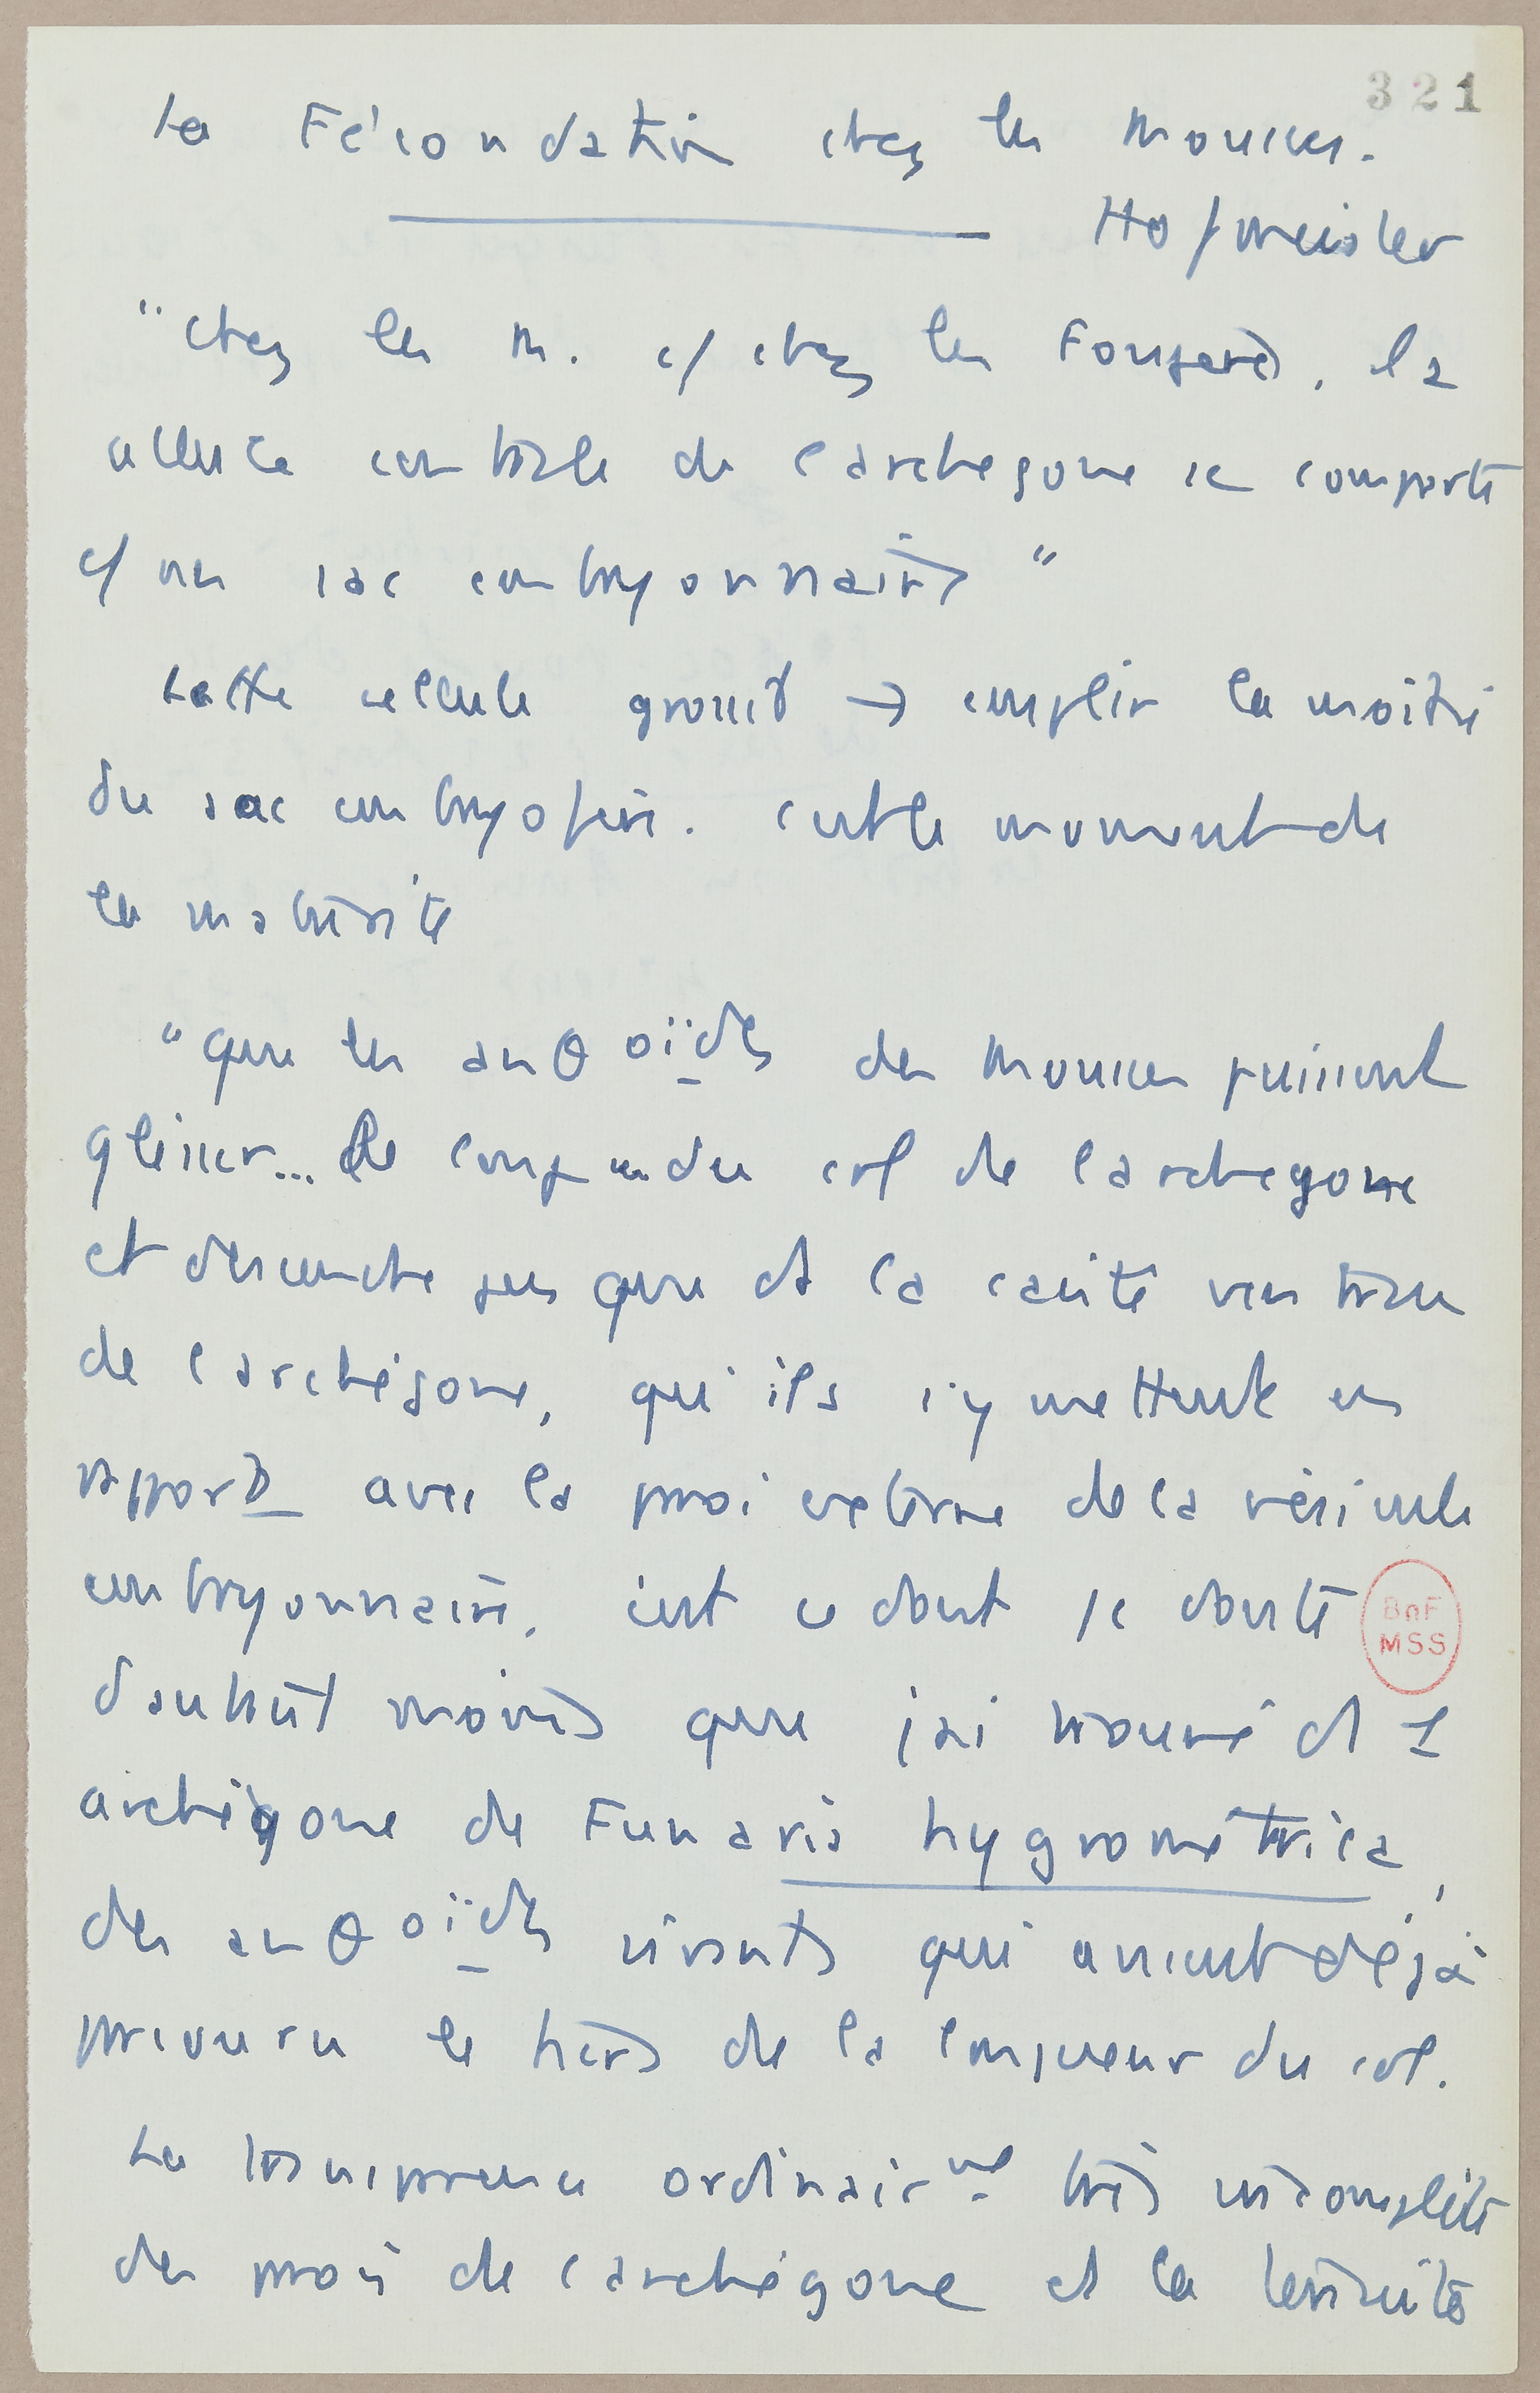 321
La Fécondation chez les Mousses.
Hofmeister
"chez les M. c/ chez les Fougères, la
cellule centrale de l'archegone se comporte
c/ un sac embryonnaire"
Cette cellule grossit → emplir la moitié
du sac embryofère. C'est le moment de
la maturité
"que les anθoïdes des Mousses puissent
glisser... le long du col de l'archegone
et descendre jusque ds la cavité ventrue
de l'archégone, qu'ils s'y mettent en
rapport avec la paroi externe de la vésicule
embryonnaire, c'est ce dont je doute
BnF
MSS
d'autant moins que j'ai trouvé ds 1
archégone de Funaria hygrométrica,
des anθoïdes vivants qui avaient déjà
parcouru le tiers de la longueur du col.
La transparence ordinairmt très incomplète
des parois de l'archégone et la ténuité